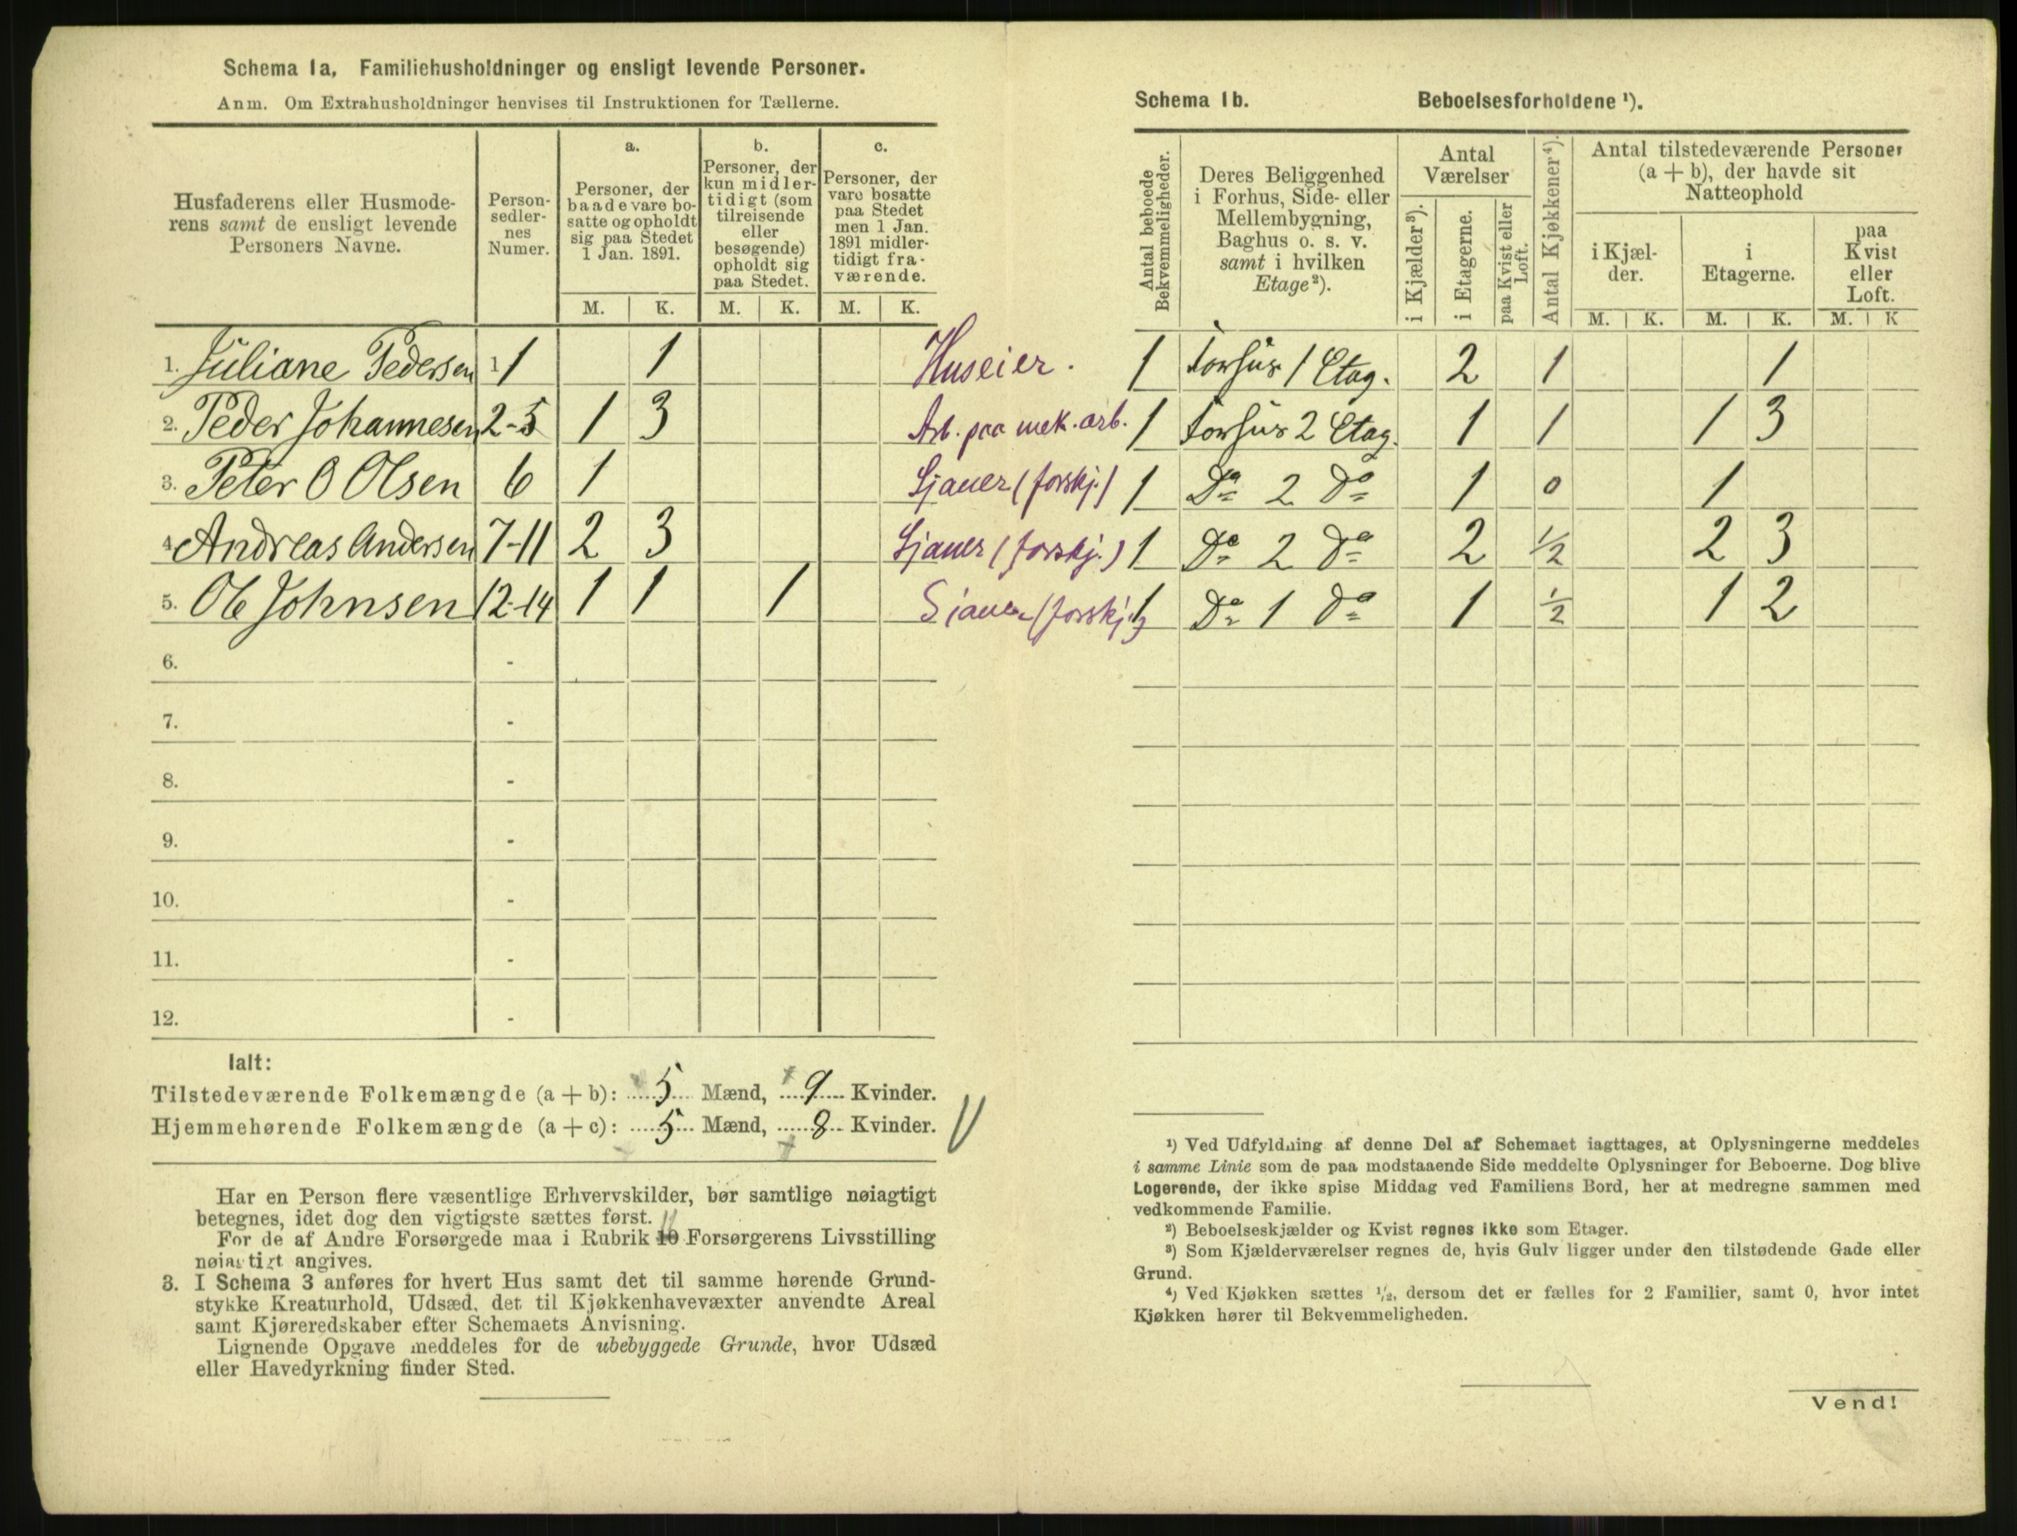 Schema 1a, Familiehusholdninger og ensligt levende Personer.
Anm. Om Extrahusholdninger henvises til Instruktionen for Tællerne.
Husfaderens eller Husmode-
rens samt de ensligt levende
Personers Navne.
Person-
sedler-
nes
Numer.
a.
Personer, der
baade vare bo-
satte og opholdt
sig paa Stedet
1 Jan. 1891.
b.
Personer, der
kun midler-
tidigt (som
tilreisende
eller
besøgende)
opholdt sig
paa Stedet.
c.
Personer, der
vare bosatte
paa Stedet
men 1 Jan.
1891 midler-
tidigt fra-
værende.
M. K. M. K. M. K.
1. Juliane Pedersen 1 1 1 Huseier.
2. Peder Johannesen 2-5 1 3 Arb. paa mek. arb.
3. Peter O Olsen 6 1 Sjauer (forskj.)
4. Andreas Andersen 7-11 2 3 Sjauer (forskj.)
5. Ole Johnsen 12-14 1 1 1 Sjauer (forskj.)
6. -
7. -
8. -
9. -
10. -
11. -
12. -
Ialt:
Tilstedeværende Folkemængde (a + b): 5 Mænd, 9 Kvinder.
Hjemmehørende Folkemængde (a + c): 5 Mænd, 8 Kvinder.
Har en Person flere væsentlige Erhvervskilder, bør samtlige nøiagtigt
betegnes, idet dog den vigtigste sættes først.
11
For de af Andre Forsørgede maa i Rubrik 10 Forsørgerens Livsstilling
nøiagtigt angives.
3. I Schema 3 anføres for hvert Hus samt det til samme hørende Grund-
stykke Kreaturhold, Udsæd, det til Kjøkkenhavevæxter anvendte Areal
samt Kjøreredskaber efter Schemaets Anvisning.
Lignende Opgave meddeles for de ubebyggede Grunde, hvor Udsæd
eller Havedyrkning finder Sted.
Schema 1b. Beboelsesforholdene ¹).
Antal beboede
Bekvemmeligheder.
Deres Beliggenhed
i Forhus, Side- eller
Mellembygning,
Baghus o. s. v.
samt i hvilken
Etage²).
Antal
Værelser
i Kjælder³).
i Etagerne.
paa Kvist eller
Loft.
Antal Kjøkkener⁴).
Antal tilstedeværende Personer
(a + b), der havde sit
Natteophold
i Kjæl-
der.
i
Etagerne.
paa
Kvist
eller
Loft.
M. K. M. K. M. K
1 Forhus 1 Etag. 2 1 1
1 Forhus 2 Etag. 1 1 1 3
1 Do 2 Do 1 0 1
1 Do 2 Do 2 1/2 2 3
1 Do 1 Do 1 1/2 1 2
¹) Ved Udfyldning af denne Del af Schemaet iagttages, at Oplysningerne meddeles
i samme Linie som de paa modstaaende Side meddelte Oplysninger for Beboerne. Dog blive
Logerende, der ikke spise Middag ved Familiens Bord, her at medregne sammen med
vedkommende Familie.
²) Beboelseskjælder og Kvist regnes ikke som Etager.
³) Som Kjælderværelser regnes de, hvis Gulv ligger under den tilstødende Gade eller
Grund.
⁴) Ved Kjøkken sættes ½, dersom det er fælles for 2 Familier, samt 0, hvor intet
Kjøkken hører til Bekvemmeligheden.
Vend!